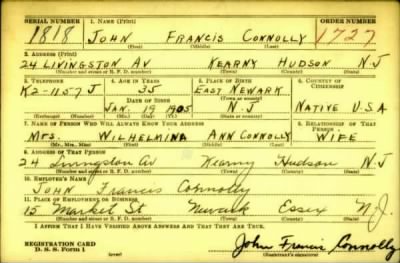 SERIAL NUMBER 1. NAME (Print) ORDER NUMBER
1818 JOHN FRANCIS CONNOLLY 1727
(First) (Middle) (Last)
2. ADDRESS (Print)
24 LIVINGSTON AV KEARNY HUDSON N.J
(Number and street or R. F. D. number) (Town) (County) (State)
3. TELEPHONE 4. AGE IN YEARS 5. PLACE OF BIRTH 6. COUNTRY OF CITIZENSHIP
K2-1157 J 35 EAST NEWARK
DATE OF BIRTH (Town or county)
JAN. 19 1905 N.J NATIVE U.S.A
(Exchange) (Number) (Mo.) (Day) (Yr.) (State or country)
7. NAME OF PERSON WHO WILL ALWAYS KNOW YOUR ADDRESS 8. RELATIONSHIP OF THAT PERSON
MRS. WILHELMINA ANN CONNOLLY WIFE
(Mr., Mrs., Miss) (First) (Middle) (Last)
9. ADDRESS OF THAT PERSON
24 Livingston Av Kearny Hudson N J
(Number and street or R. F. D. number) (Town) (County) (State)
10. EMPLOYER'S NAME
JOHN Francis Connolly
11. PLACE OF EMPLOYMENT OR BUSINESS
15 Market St Newark Essex N.J.
(Number and street or R. F. D. number) (Town) (County) (State)
I AFFIRM THAT I HAVE VERIFIED ABOVE ANSWERS AND THAT THEY ARE TRUE.
REGISTRATION CARD
D. S. S. Form 1 (over) John Francis Connolly
(Registrant's signature)